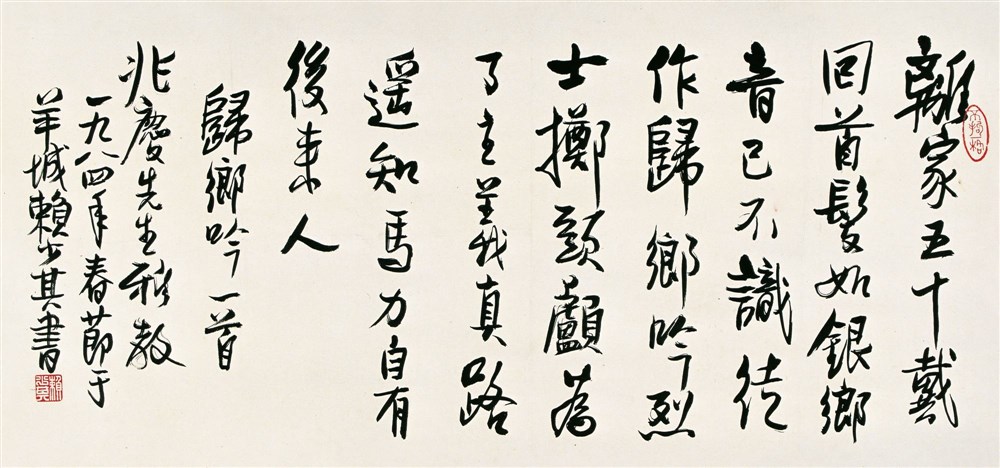 離家五十戴
回首髮如銀鄉
音已不識徒
作歸鄉吟烈
士擲頭顱為
了主義真路
遥知馬力自有
後来人
歸鄉吟一首
兆慶先生雅教
一九八四年春節于
羊城賴少其書